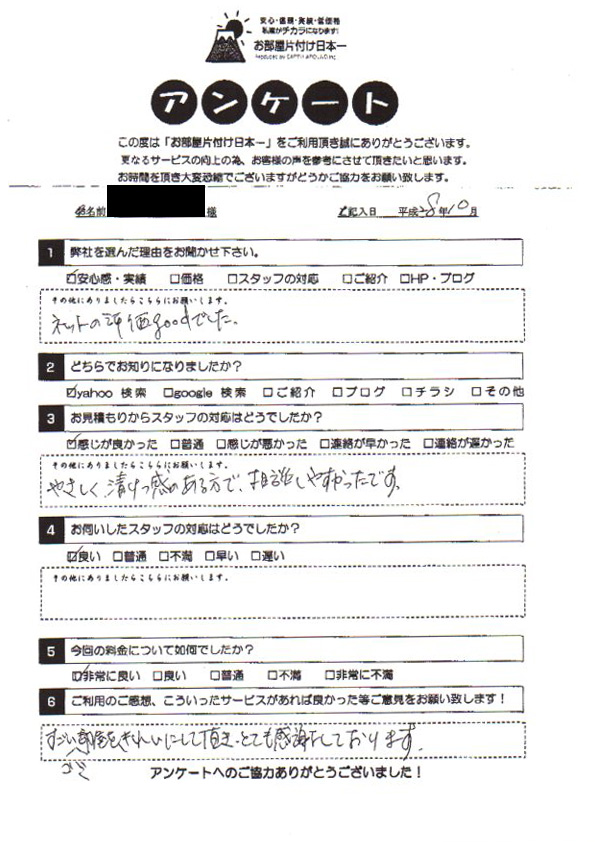 安心・信頼・実績・低価格
私達がチカラになります!
お部屋片付け日本一
Produced by EARTH APOLLO.Inc
アンケート
この度は「お部屋片付け日本一」をご利用頂き誠にありがとうございます。
更なるサービスの向上の為、お客様の声を参考にさせて頂きたいと思います。
お時間を頂き大変恐縮でございますがどうかご協力をお願い致します。
お名前 様 ご記入日 平成28年10月
1 弊社を選んだ理由をお聞かせ下さい。
☑安心感・実績 □価格 □スタッフの対応 □ご紹介 □HP・ブログ
その他にありましたらこちらにお願いします。
ネットの評価goodでした。
2 どちらでお知りになりましたか?
☑yahoo 検索 □google 検索 □ご紹介 □ブログ □チラシ □その他
3 お見積もりからスタッフの対応はどうでしたか?
☑感じが良かった □普通 □感じが悪かった □連絡が早かった □連絡が遅かった
その他にありましたらこちらにお願いします。
やさしく、清けつ感のある方で、相談しやすかったです。
4 お伺いしたスタッフの対応はどうでしたか?
☑良い □普通 □不満 □早い □遅い
その他にありましたらこちらにお願いします。
5 今回の料金について如何でしたか?
☑非常に良い □良い □普通 □不満 □非常に不満
6 ご利用のご感想、こういったサービスがあれば良かった等ご意見をお願い致します!
すごい部屋をきれいにして頂き、とても感謝しております。
ゴミ
アンケートへのご協力ありがとうございました!